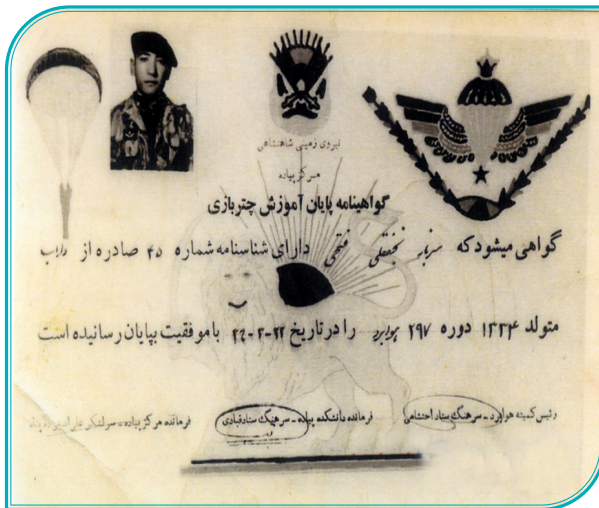 نیروی زمینی شاهنشاهی
مرکز پیاده
گواهینامه پایان آموزش چتربازی
گواهی میشود که سرباز نجفقلی فتحی دارای شناسنامه شماره ۴۵ صادره از داراب
متولد ۱۳۳۴ دوره ۲۹۷ هوابرد را در تاریخ با موفقیت بپایان رسانیده است
رئیس کمیته هوابرد - سرهنگ ستاد احتشامی
فرمانده دانشکده پیاده - سرهنگ ستاد قبادی
فرمانده مرکز پیاده - سرلشکر علی